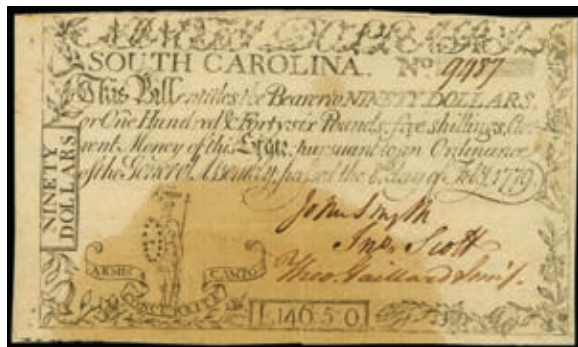 SOUTH CAROLINA. No. 9987
This Bill entitles the Bearer to NINETY DOLLARS,
or One Hundred & Forty six Pounds, five shillings, Cur-
rent Money of this State, pursuant to an Ordinance
of the General Assembly, passed the 8 day of Feby. 1779
NINETY
DOLLARS
John Smyth
Jno. Scott
Theo. Gaillard Junr.
ARMIS
CAMPO
L 146 5 0